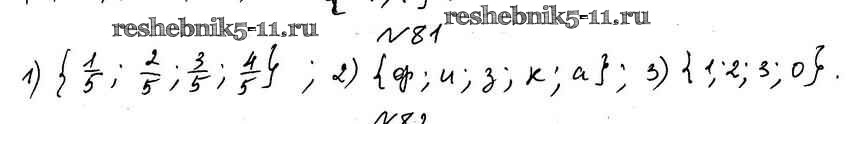 reshebnik5-11.ru
reshebnik5-11.ru
№81
1) {1/5; 2/5; 3/5; 4/5}; 2) {ф; и; з; к; а}; 3) {1; 2; 3; 0}.
№82